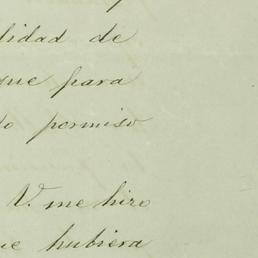 lidad de
que para
do permiso
V. me hizo
ue hubiera